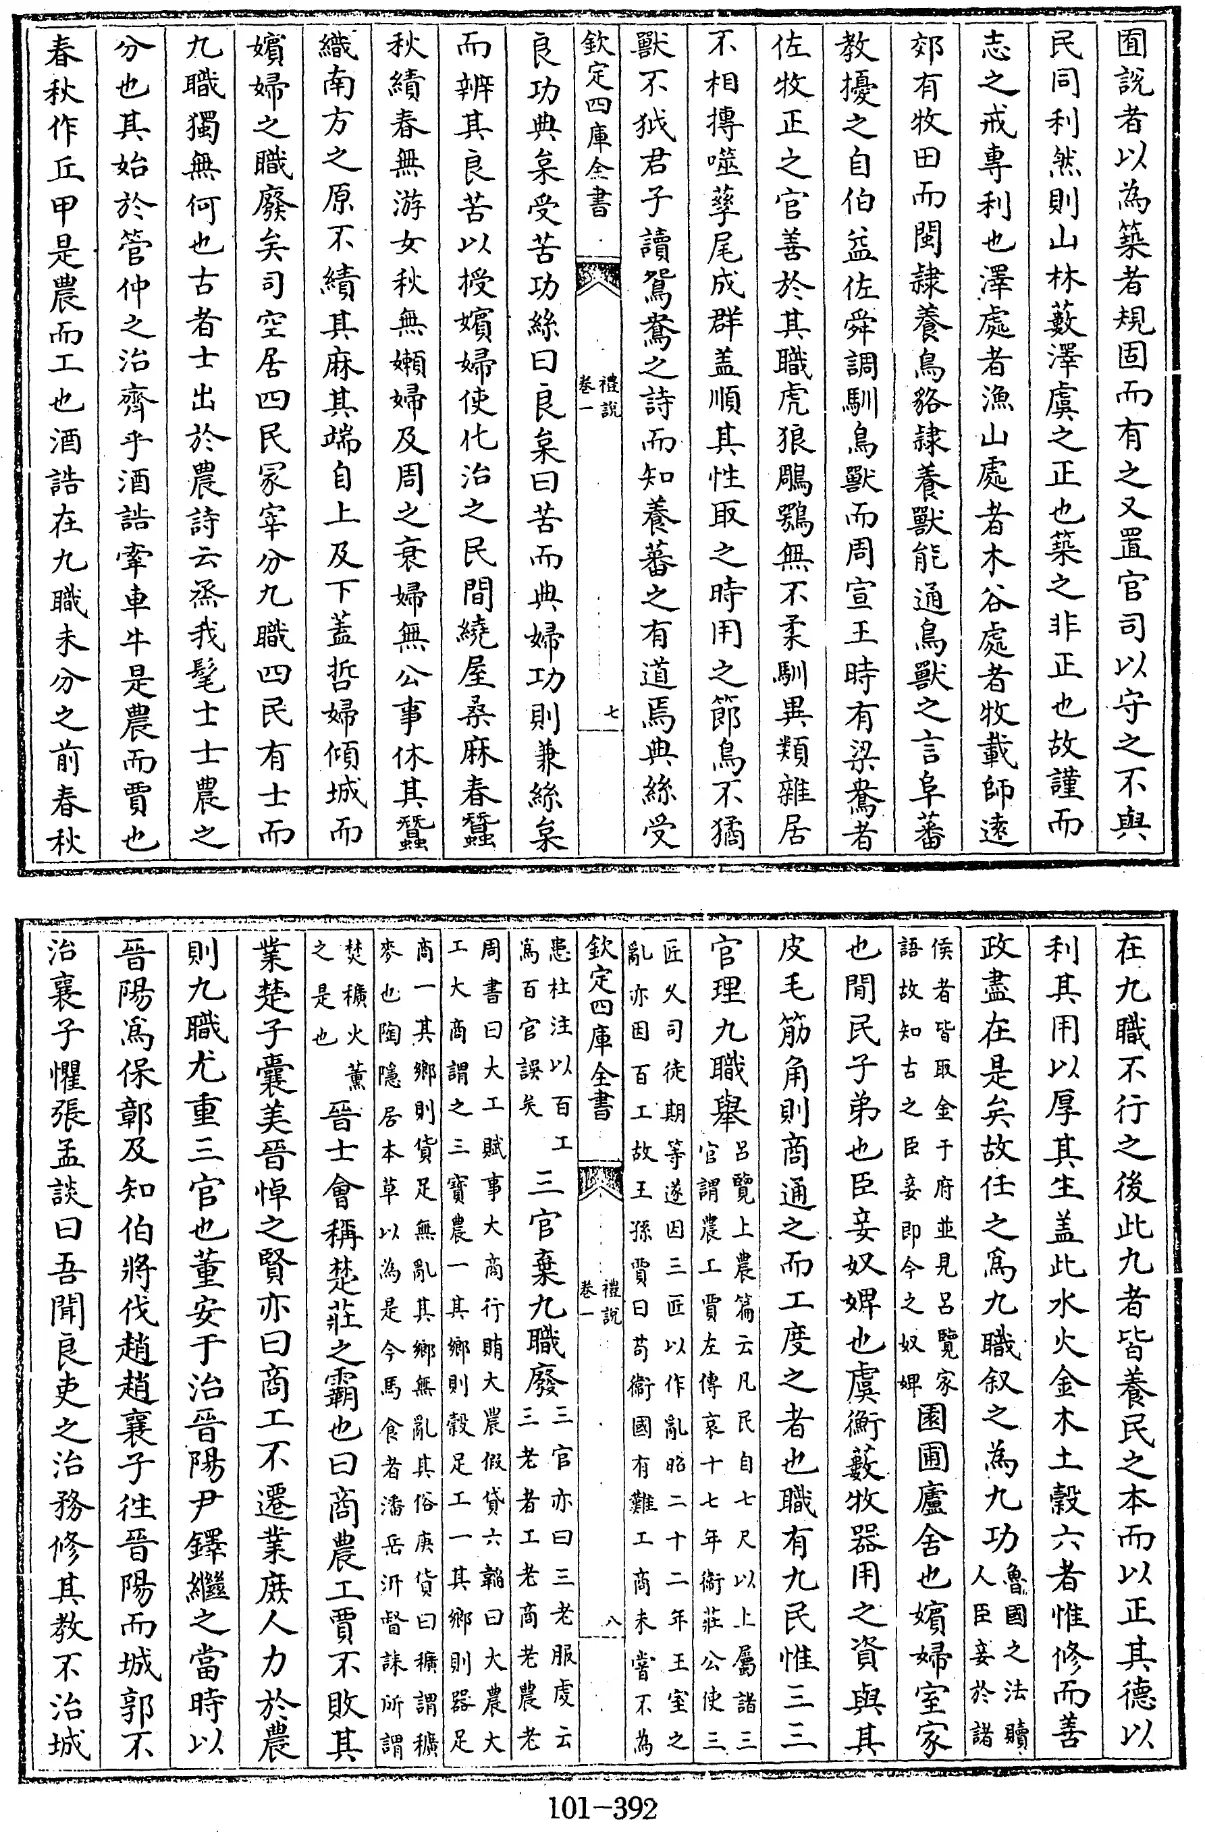 囿説者以為築者規固而有之又置官司以守之不與
民同利然則山林藪澤虞之正也築之非正也故謹而
志之戒專利也澤處者漁山處者木谷處者牧載師遠
郊有牧田而閩隷養鳥貉隷養獸能通鳥獸之言阜蕃
教擾之自伯益佐舜調馴鳥獸而周宣王時有梁鴦者
佐牧正之官善於其職虎狼鵰鶚無不柔馴異類雜居
不相搏噬孳尾成群盖順其性取之時用之節鳥不獝
獸不狘君子讀鴛鴦之詩而知養蕃之有道焉典絲受
欽定四庫全書
禮說
卷一
七
良功典枲受苦功絲曰良枲曰苦而典婦功則兼絲枲
而辨其良苦以授嬪婦使化治之民間繞屋桑麻春蠶
秋績春無游女秋無嬾婦及周之衰婦無公事休其蠶
織南方之原不績其麻其端自上及下蓋哲婦傾城而
嬪婦之職廢矣司空居四民冢宰分九職四民有士而
九職獨無何也古者士出於農詩云烝我髦士士農之
分也其始於管仲之治齊乎酒誥牽車牛是農而賈也
春秋作丘甲是農而工也酒誥在九職未分之前春秋
在九職不行之後此九者皆養民之本而以正其德以
利其用以厚其生盖此水火金木土穀六者惟修而善
政盡在是矣故任之為九職叙之為九功魯國之法贖人臣妾於諸
侯者皆取金于府並見呂覽家語故知古之臣妾即今之奴婢園圃廬舍也嬪婦室家
也閒民子弟也臣妾奴婢也虞衡藪牧器用之資與其
皮毛筋角則商通之而工度之者也職有九民惟三三
官理九職舉呂覽上農篇云凡民自七尺以上屬諸三官謂農工賈左傳哀十七年衞莊公使三
匠久司徒期等遂因三匠以作亂昭二十二年王室之亂亦因百工故王孫賈曰苟衞國有難工商未嘗不為
欽定四庫全書
禮說
卷一
八
患杜注以百工為百官誤矣三官棄九職廢三官亦曰三老服虔云三老者工老商老農老
周書曰大工賦事大商行賄大農假貸六韜曰大農大工大商謂之三寳農一其鄉則穀足工一其鄉則器足
商一其鄉則貨足無亂其鄉無亂其俗庚貨曰穬謂穬麥也陶隱居本草以為是今馬食者潘岳汧督誄所謂
焚穬火薰之是也晉士會稱楚莊之霸也曰商農工賈不敗其
業楚子囊美晉悼之賢亦曰商工不遷業庶人力於農
則九職尤重三官也董安于治晉陽尹鐸繼之當時以
晉陽為保鄣及知伯將伐趙趙襄子徃晉陽而城郭不
治襄子懼張孟談曰吾聞良吏之治務修其教不治城
101-392